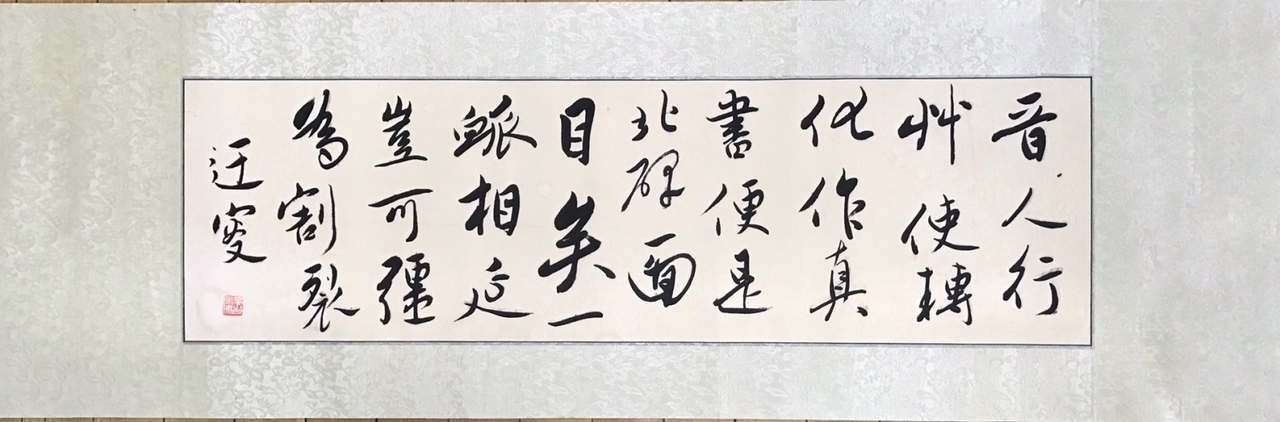 晋人行
艸使轉
化作真
書便是
北碑面
目矣一
衇相延
豈可彊
為割裂
迂叜